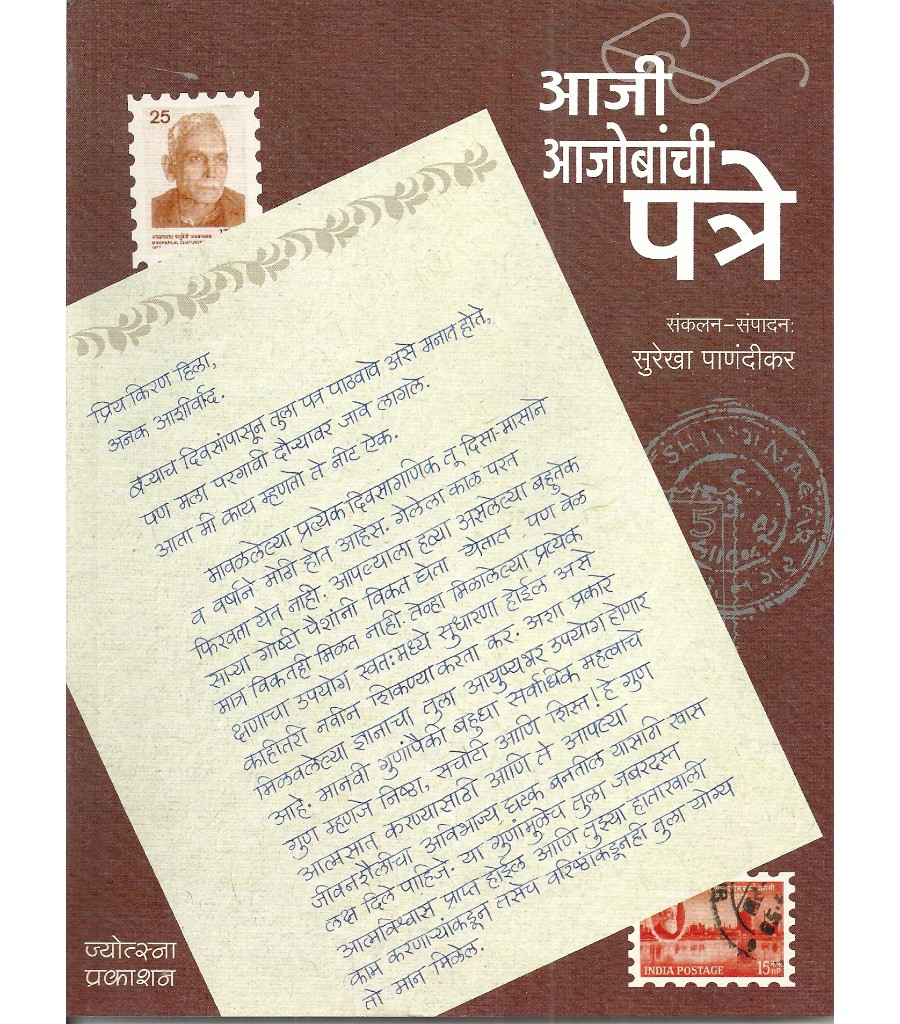 आजी
आजोबांची
पत्रे
संकलन-संपादन:
सुरेखा पाणंदीकर
25
MAKHANLAL CHATURVEDI
1977
प्रिय किरण हिला,
अनेक आशीर्वाद.
बऱ्याच दिवसांपासून तुला पत्र पाठवावे असे मनात होते,
पण मला परगावी दौऱ्यावर जावे लागले.
आता मी काय म्हणतो ते नीट ऐक.
मावळलेल्या प्रत्येक दिवसागणिक तू दिसा-मासाने
व वर्षाने मोठी होत आहेस. गेलेला काळ परत
फिरवता येत नाही. आपल्याला हव्या असलेल्या बहुतेक
साऱ्या गोष्टी पैशांनी विकत घेता येतात पण वेळ
मात्र विकतही मिळत नाही. तेव्हा मिळालेल्या प्रत्येक
क्षणाचा उपयोग स्वत:मध्ये सुधारणा होईल असे
काहीतरी नवीन शिकण्याकरता कर. अशा प्रकारे
मिळवलेल्या ज्ञानाचा तुला आयुष्यभर उपयोग होणार
आहे. मानवी गुणांपैकी बहुधा सर्वाधिक महत्वाचे
गुण म्हणजे निष्ठा, सचोटी आणि शिस्त! हे गुण
आत्मसात करण्यासाठी आणि ते आपल्या
जीवनशैलीचा अविभाज्य घटक बनतील यासाठी खास
लक्ष दिले पाहिजे. या गुणांमुळेच तुला जबरदस्त
आत्मविश्वास प्राप्त होईल आणि तुझ्या हाताखाली
काम करणाऱ्यांकडून तसेच वरिष्ठांकडूनही तुला योग्य
तो मान मिळेल.
INDIA POSTAGE
15 nP
ज्योत्स्ना
प्रकाशन